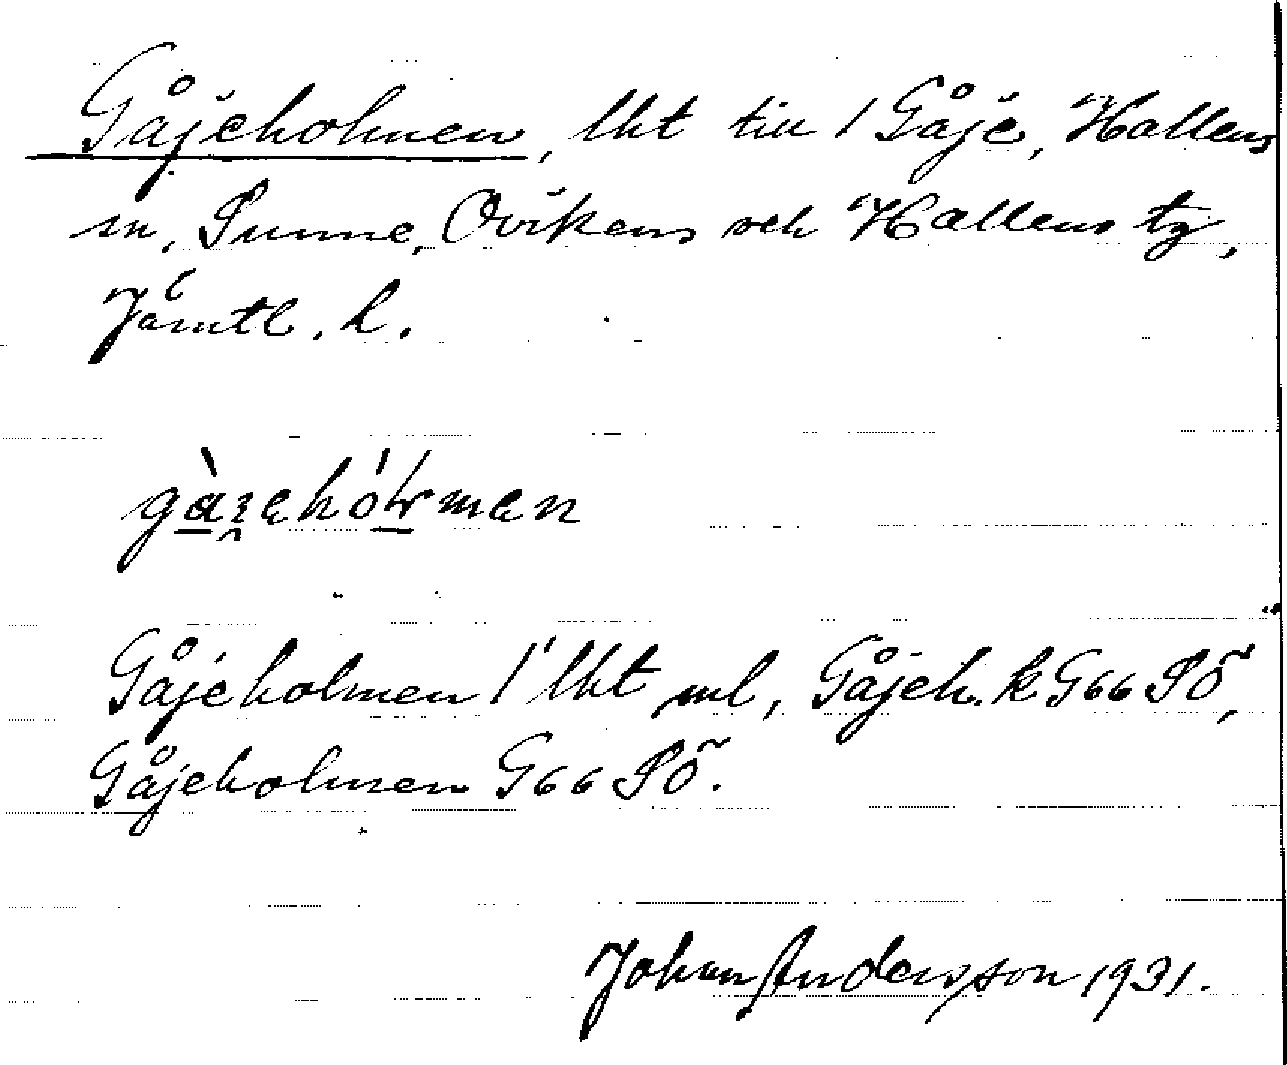 Gåjeholmen, lht till 1 Gåje, Hallens
sn, Sunne, Ovikens och Hallens tg,
Jämtl. l.
Gåjeholmen 1 lht ml, Gåjeh. k G66 SÖ,
Gåjeholmen G66 SÖ.
Johan Andersson 1931.